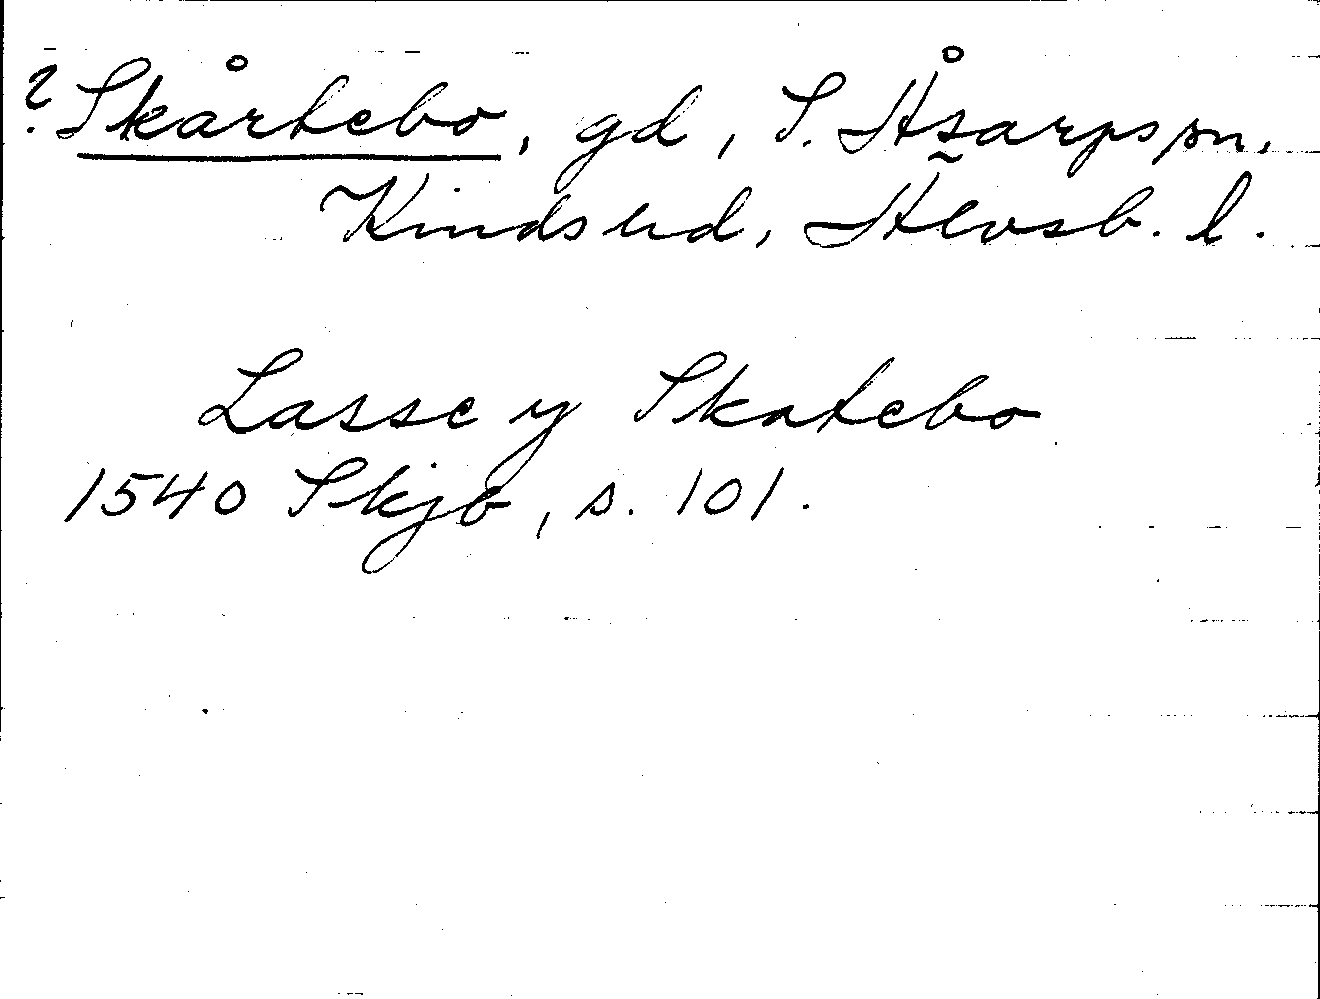 ? Skårtebo, gd, S. Åsarps sn,
Kinds hd, Älvsb. l.
Lasse y Skatebo
1540 Skjb, s. 101.